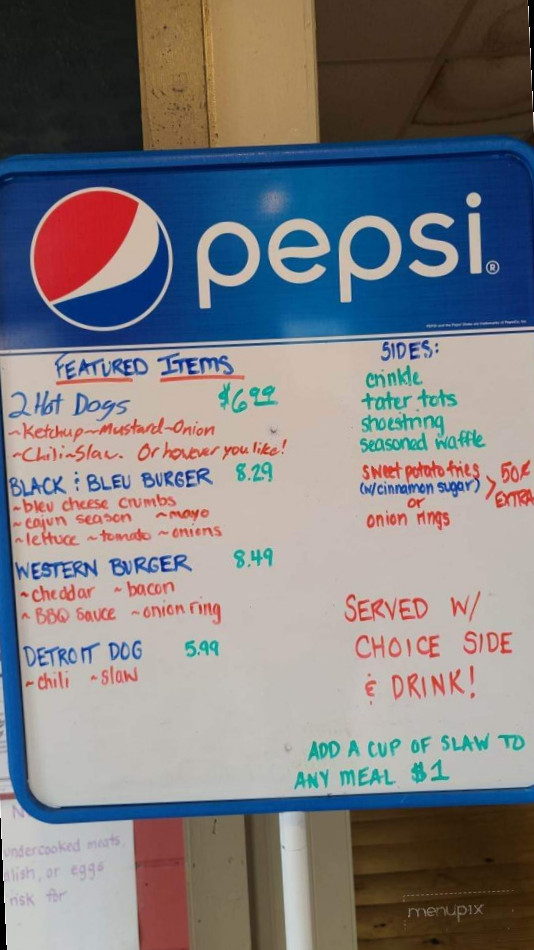 pepsi®
FEATURED ITEMS
2 Hot Dogs $6.99
~Ketchup~Mustard~Onion
~Chili~Slaw. Or however you like!
BLACK & BLEU BURGER 8.29
~bleu cheese crumbs
~cajun season ~mayo
~lettuce ~tomato ~onions
WESTERN BURGER 8.49
~cheddar ~bacon
~BBQ sauce ~onion ring
DETROIT DOG 5.99
~chili ~slaw
SIDES:
crinkle
tater tots
shoestring
seasoned waffle
sweet potato fries
(w/cinnamon sugar) > 50¢
or EXTRA
onion rings
SERVED W/
CHOICE SIDE
& DRINK!
ADD A CUP OF SLAW TO
ANY MEAL $1
undercooked meats,
or eggs
risk for
menupix